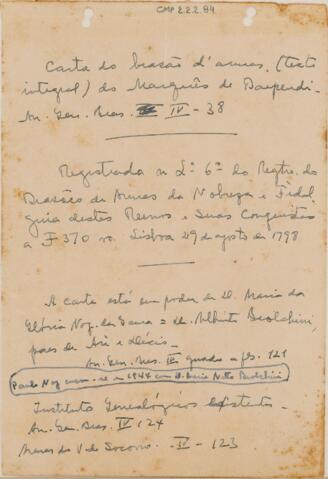 CMP 2.2.2.84
Carta do brasão d'armas (texto
integral) do Marquês de Baependi -
An. Gen. Bras. IV - 38
Registrada no L.º 6º do Regtro. do
Brasões de Armas da Nobreza e Fidal
guia destes Reinos e Suas Conquistas
a F 370 vo. Lisboa 29 de agosto de 1798
A carta está em poder de D. Maria da
Glória Nog. da Gama e de Alberto Beolchini,
paes de Ari e Décio.
An. Gen. Bras. quadro a fls. 121
Paulo Nog casou-se em 1944 com D. Maria Beolchini
Instituto Genealógico
An. Gen. Bras. IV 124
V. de Socorro. - IV - 123